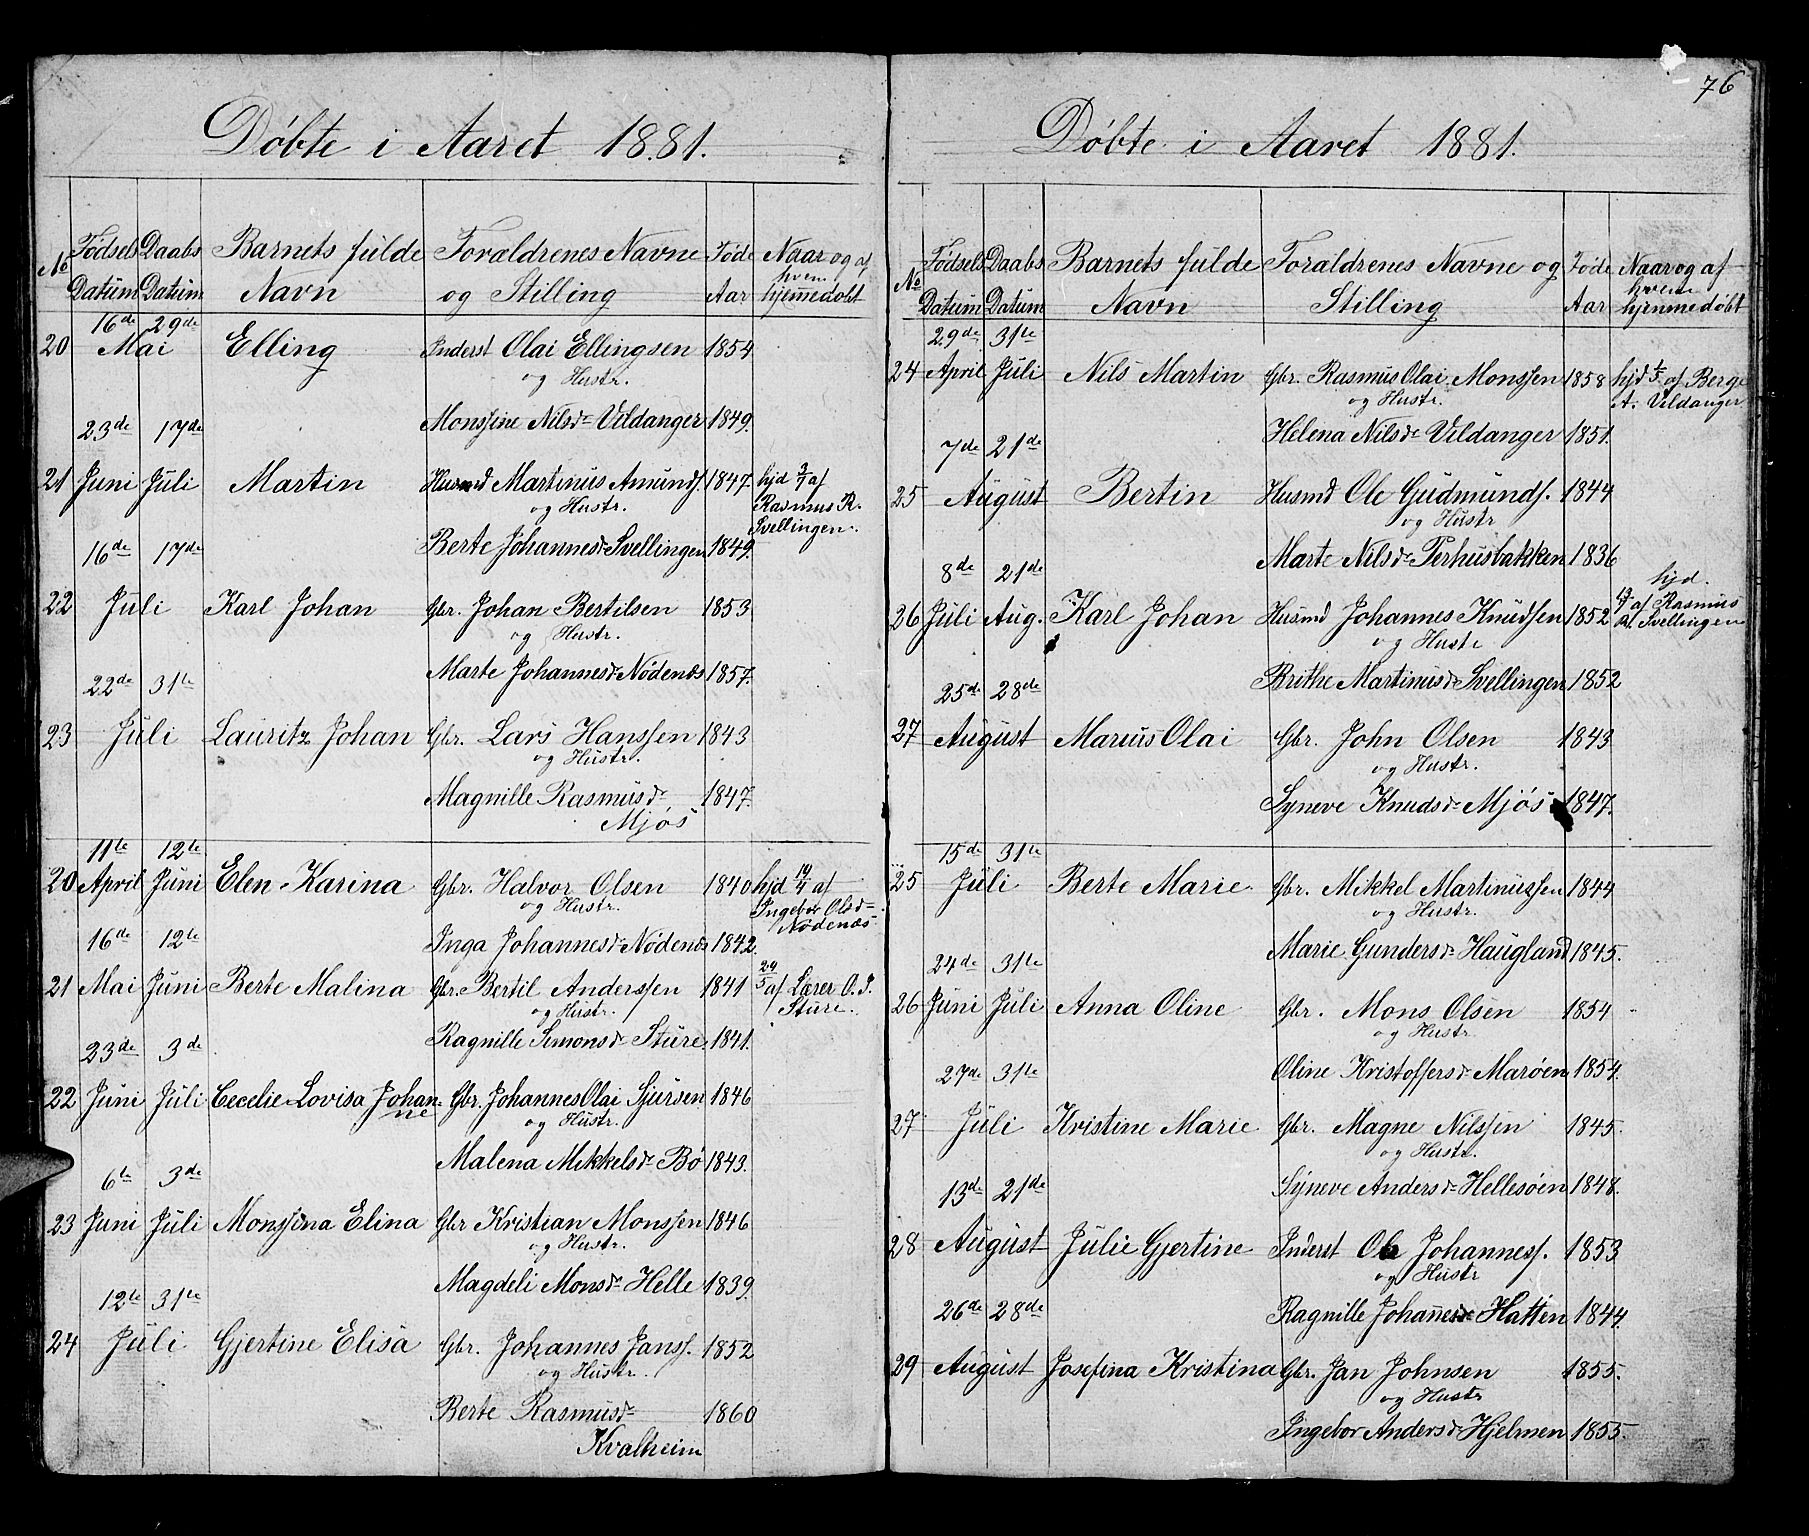 Døbte i Aaret 1881.
No Fødsels Datum Daabs Datum Barnets fulde Navn Foraldrenes Navne og Stilling Føde Aar Naar og af hvem hjemmedøbt
16de 29de
20 Mai Elling Inderst Olai Ellingsen 1854
og Hustr.
Monssine Nilsdr Vildanger 1849.
23de 17de
21 Juni Juli Martin Husmd Martinus Amunds. 1847. hjd 3/7 af
og Hustr. Rasmus R.
Svellingen.
Berte Johannesdr Svellingen 1849.
16de 17de
22 Juli Karl Johan Gbr. Johan Bertilsen 1853
og Hustr.
Marte Johannesdr Nødenæs 1857.
22de 31te
23 Juli Lauritz Johan Gbr. Lars Hanssen 1843
og Hustr.
Magnille Rasmusdr 1847.
Mjøs
11te 12te
20 April Juni Elen Karina Gbr. Halvor Olsen 1840 hjd 14/4 af
og Hustr. Ingebor Olsdr
Nødenæs
16de 12te Inga Johannesdr Nødenæs 1842.
21 Mai Juni Berte Malina Gbr. Bertil Anderssen 1841 24/5 af Lærer O. J.
og Hustr. Sture.
Ragnille Simonsdr Sture. 1841.
23de 3de
22 Juni Juli Cecelie Lovisa Johan- Gbr. Johannes Olai Sjursen 1846
ne og Hustr.
Malena Mikkelsdr Bø 1843.
6te 3de
23 Juni Juli Monssina Elina Gbr Kristian Monssen 1846
og Hustr.
Magdeli Monsdr Helle 1839.
12te 31te
24 Juli Gjertine Elisa Gbr. Johannes Janss. 1852
og Hustr.
Berte Rasmusdr 1860
Kvalheim
76
Døbte i Aaret 1881.
No Fødsels Datum Daabs Datum Barnets fulde Navn Foraldrenes Navne og Stilling Føde Aar Naar og af hvem hjemmedøbt
29de 31te
24 April Juli Nils Martin Gbr. Rasmus Olai Monssen 1858 hjd 1/5 af Berge
og Hustr. A. Vildanger
Helena Nilsdr Vildanger 1851.
7de 21de
25 August Bertin Husmd Ole Gudmunds. 1844
og Hustr
Marte Nilsdr Terhusbakken 1836
8de 21de hjd.
26 Juli Aug. Karl Johan Husmd Johannes Knudsen 1852 af Rasmus
og Hustr R. Svellingen
Brithe Martinusdr Svellingen 1852
25de 28de
27 August Marius Olai Gbr. John Olsen 1843
og Hustr.
Syneve Knudsdr Mjøs 1847.
15de 31te
25 Juli Berte Marie Gbr. Mikkel Martinussen 1844
og Hustr.
Marie Gundersdr Haugland 1845.
24de 31te
26 Juni Juli Anna Oline Gbr. Mons Olsen 1854
og Hustr
Oline Kristoffersdr Marøen 1854.
27de 31te
27 Juli Kristine Marie Gbr. Magne Nilssen 1845.
og Hustr.
Syneve Andersdr Hellesøen 1848.
13de 21de
28 August Julie Gjertine Inderst Ole Johanness. 1853
og Hustr
Ragnille Johanesdr Hatten 1844.
26de 28de
29 August Josefina Kristina Gbr. Jan Johnsen 1855.
og Hustr
Ingebor Andersdr Hjelmen 1855.